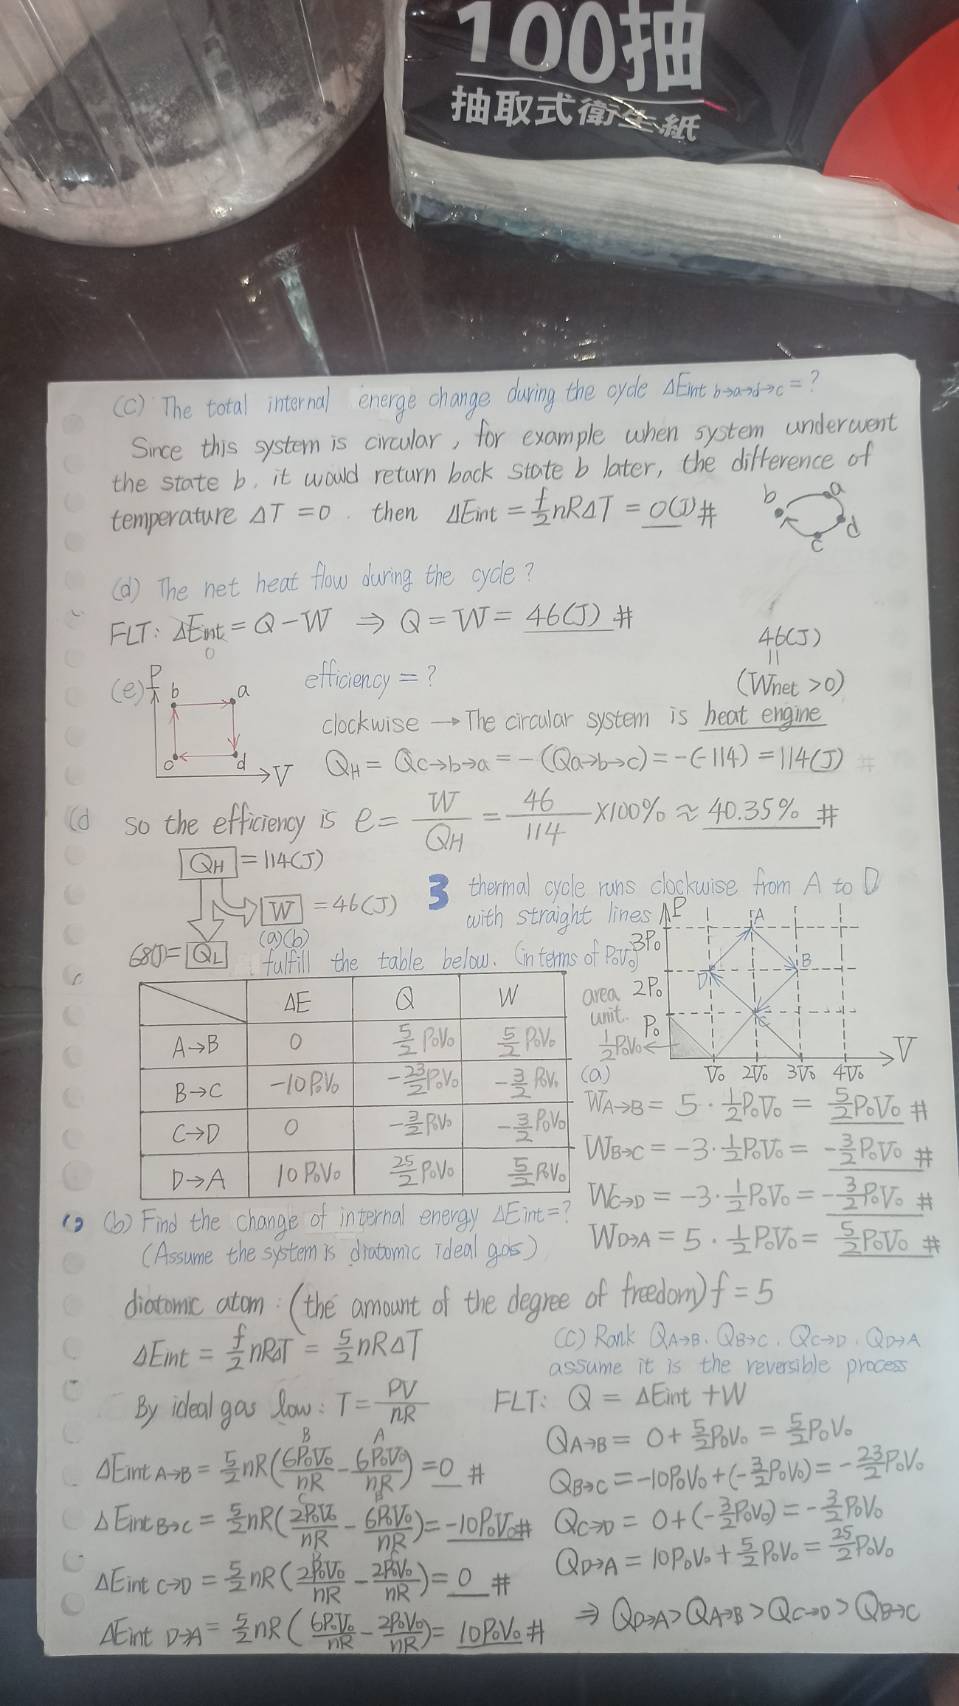 100抽
抽取式衛生紙
(c) The total internal energe change during the cycle ΔEint b→a→d→c = ?
Since this system is circular, for example when system underwent
the state b, it would return back state b later, the difference of
temperature ΔT=0. then ΔEint = f/2 nRΔT = 0(J)#
b a d c
(d) The net heat flow during the cycle?
FLT: ΔEint = Q-W ⇒ Q=W= 46(J) #
0
46(J)
(Wnet >0)
(e) efficiency = ?
P b a c d V
clockwise → The circular system is heat engine
QH = Qc→b→a = -(Qa→b→c) = -(-114) = 114(J) #
(d so the efficiency is e = W/QH = 46/114 ×100% ≈ 40.35% #
QH =114(J)
W = 46(J)
68(J)= QL
3 thermal cycle runs clockwise from A to D
with straight lines
(a)(b)
fulfill the table below. (in terms of P0V0)
ΔE Q W
A→B 0 5/2 P0V0 5/2 P0V0
B→C -10P0V0 -23/2 P0V0 -3/2 P0V0
C→D 0 -3/2 P0V0 -3/2 P0V0
D→A 10P0V0 25/2 P0V0 5/2 P0V0
P
3P0
2P0
P0
A B C D
V0 2V0 3V0 4V0 V
area
unit.
1/2 P0V0 ←
(a)
WA→B = 5·1/2 P0V0 = 5/2 P0V0 #
WB→C = -3·1/2 P0V0 = -3/2 P0V0 #
WC→D = -3·1/2 P0V0 = -3/2 P0V0 #
WD→A = 5·1/2 P0V0 = 5/2 P0V0 #
(b) Find the change of internal energy ΔEint=?
(Assume the system is diatomic ideal gas)
diatomic atom: (the amount of the degree of freedom) f = 5
ΔEint = f/2 nRΔT = 5/2 nRΔT
By ideal gas low: T = PV/nR
B A
ΔEint A→B = 5/2 nR(6P0V0/nR - 6P0V0/nR) = 0 #
C B
ΔEint B→C = 5/2 nR(2P0V0/nR - 6P0V0/nR) = -10P0V0#
ΔEint C→D = 5/2 nR(2P0V0/nR - 2P0V0/nR) = 0 #
ΔEint D→A = 5/2 nR(6P0V0/nR - 2P0V0/nR) = 10P0V0 #
(c) Rank QA→B. QB→C. QC→D. QD→A
assume it is the reversible process
FLT: Q = ΔEint +W
QA→B = 0+ 5/2 P0V0 = 5/2 P0V0
QB→C = -10P0V0 +(-3/2 P0V0) = -23/2 P0V0
QC→D = 0+(-3/2 P0V0) = -3/2 P0V0
QD→A = 10P0V0 + 5/2 P0V0 = 25/2 P0V0
⇒ QD→A > QA→B > QC→D > QB→C